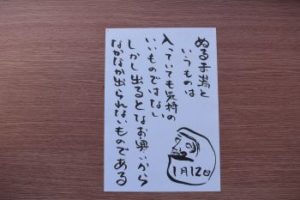 ぬる手湯と
いうものは
入っていても気持の
いいものではない
しかし出るとなお寒いから
なかなか出られないものである
1月12日